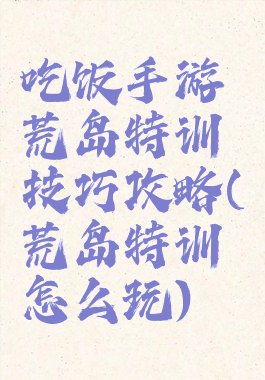 吃饭手游
荒岛特训
技巧攻略(
荒岛特训
怎么玩)